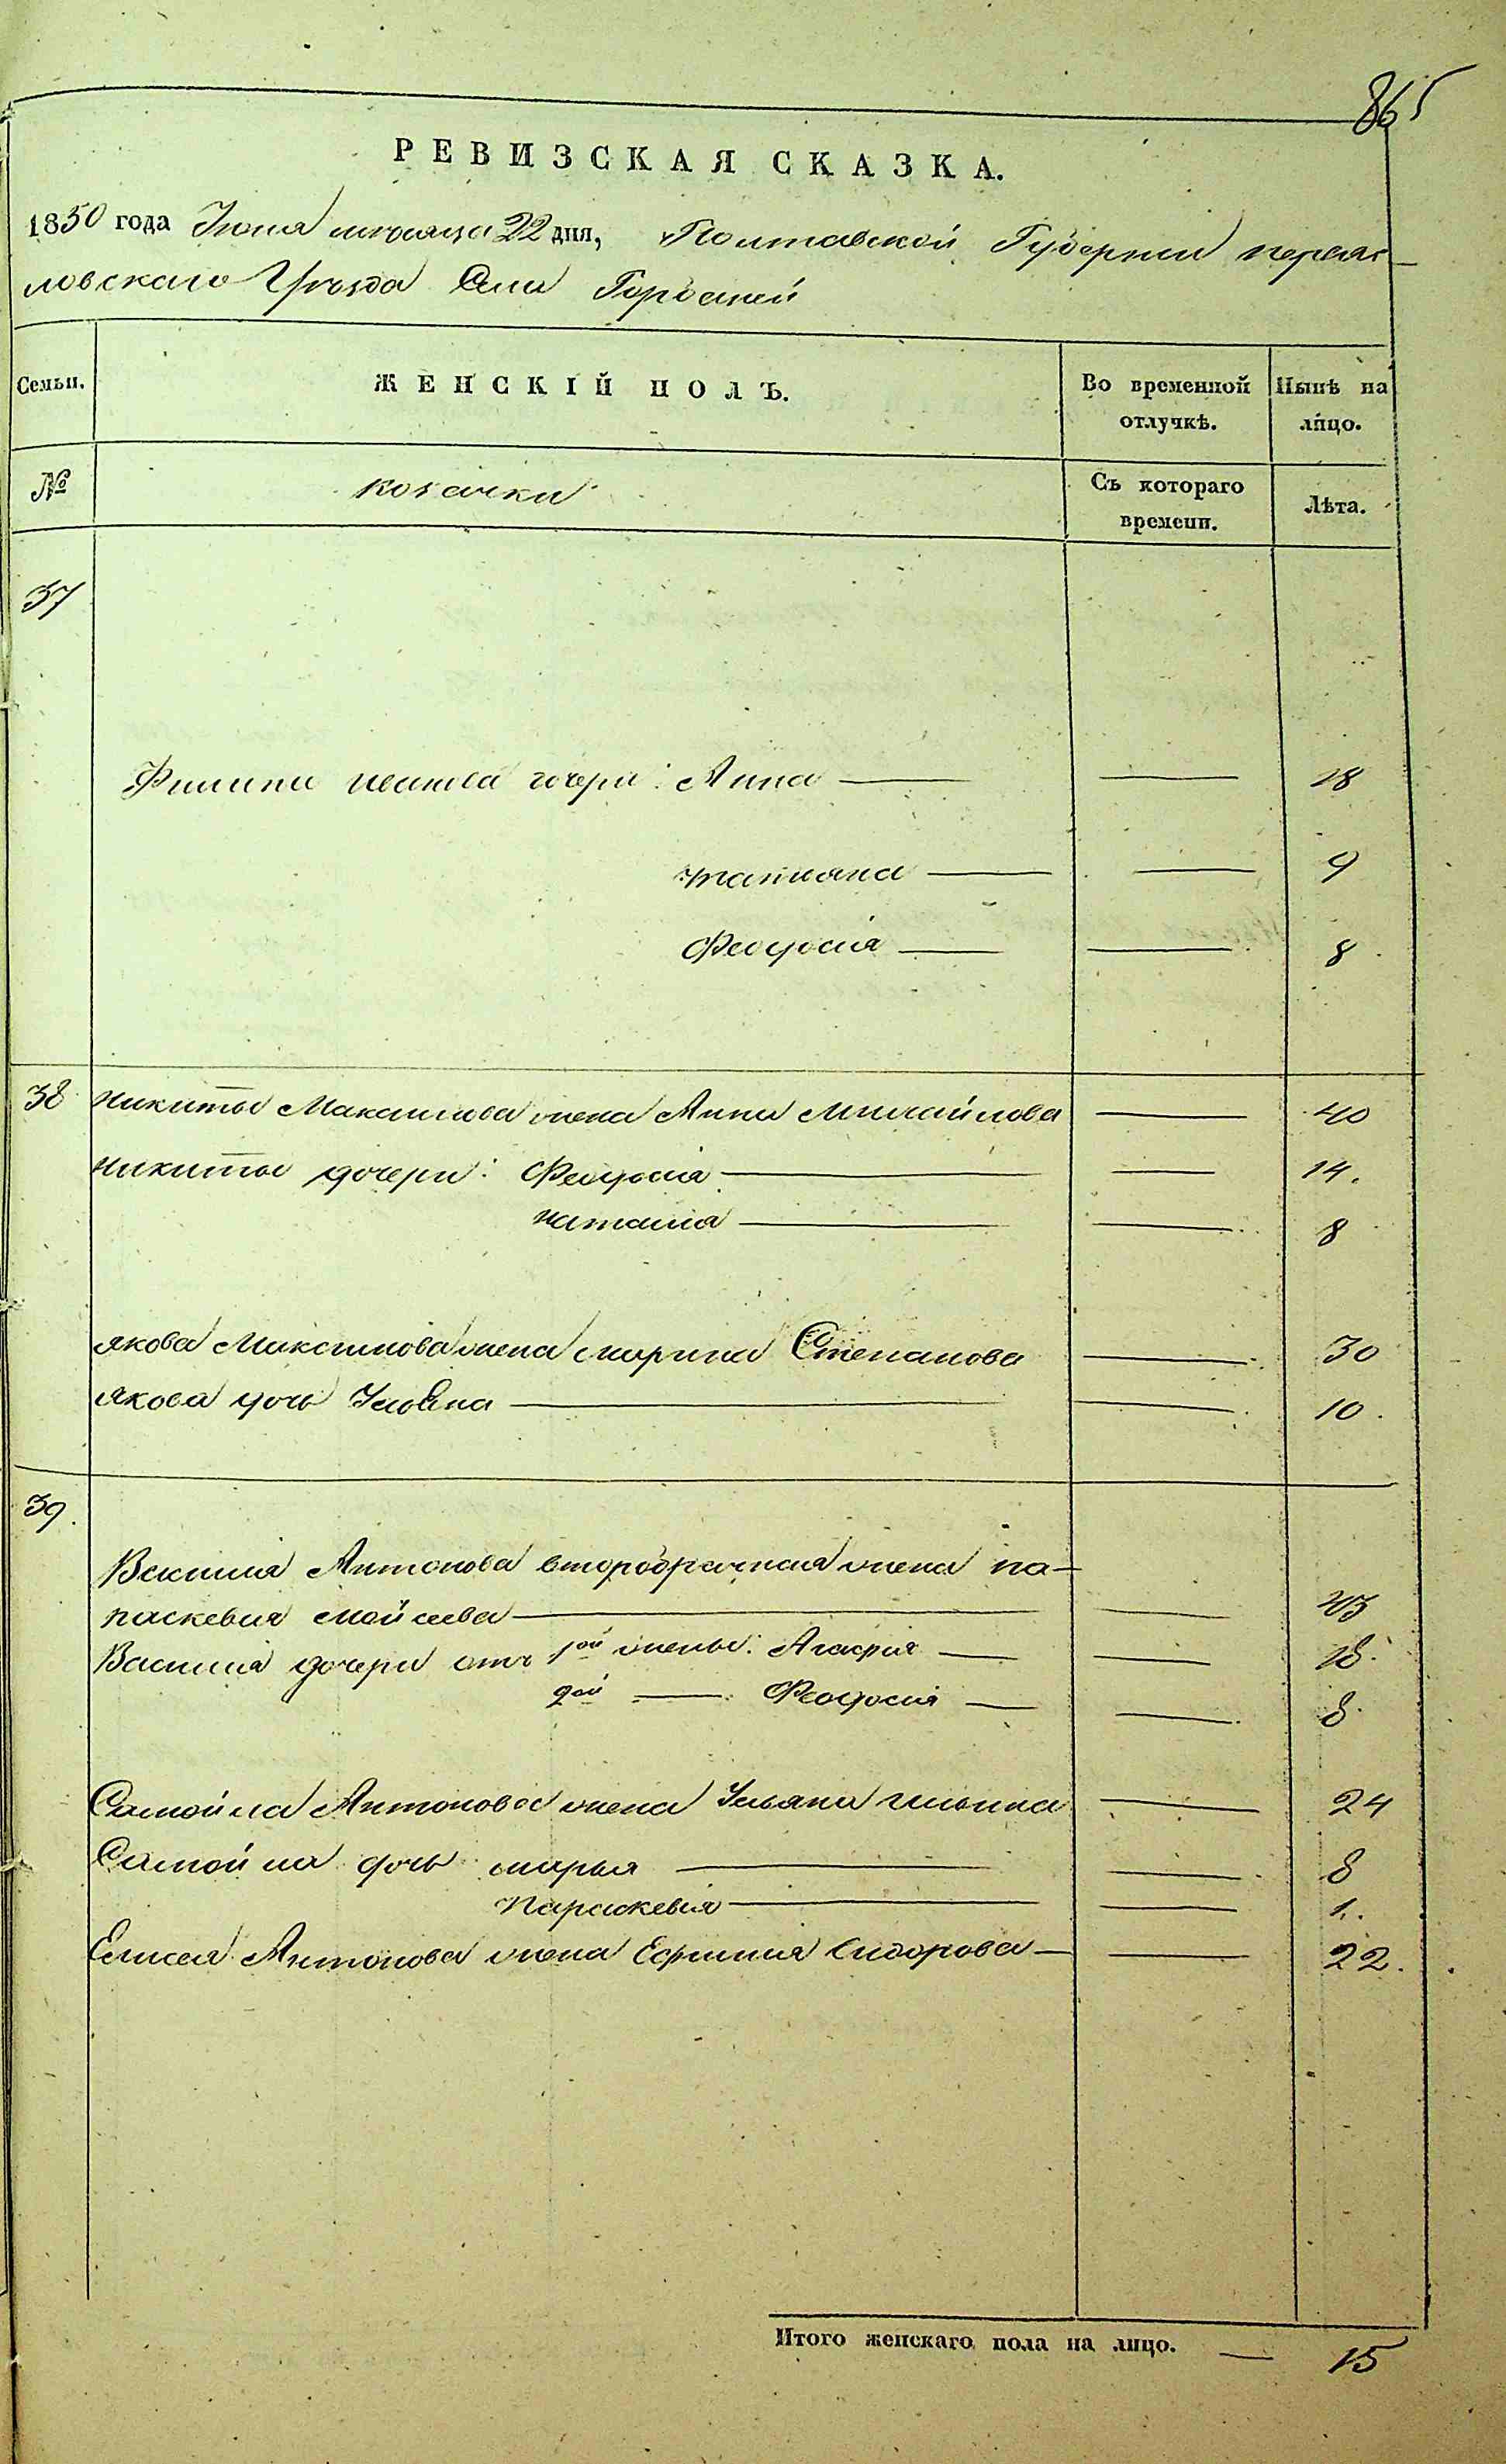 865
РЕВИЗСКАЯ СКАЗКА.
1850 года Июня месяца 22 дня, Полтавской Губернии переяс-
ловскаго Уезда Села Горбаней
Семьи. ЖЕНСКІЙ ПОЛЪ. Во временной отлучкѣ. Нынѣ на лицо.
№ козачки Съ котораго времени. Лѣта.
37
Филипа Иванова дочери: Анна — — 18
татияна — — 9
Феодосія — — 8
38 Никиты Максимова жена Анна Михайлова — 40
Никиты дочери: Феодосія — — 14.
Наталия — — 8
якова Максимова жена марина Степанова — 30
якова дочь Ульяна — — 10.
39.
Василия Антонова второбрачная жена па-
раскевия мойсеева — — 43
Василия дочери отъ 1ой жены: Агафия — — 18.
2ой — Феодосия — — 8
Самойла Антонова жена Ульяна ильина — 24
Самойла дочь марья — — 8
Параскевия — — 1.
Елисея Антонова жена Ефимия Сидорова — — 22.
Итого женскаго пола на лицо. — 15